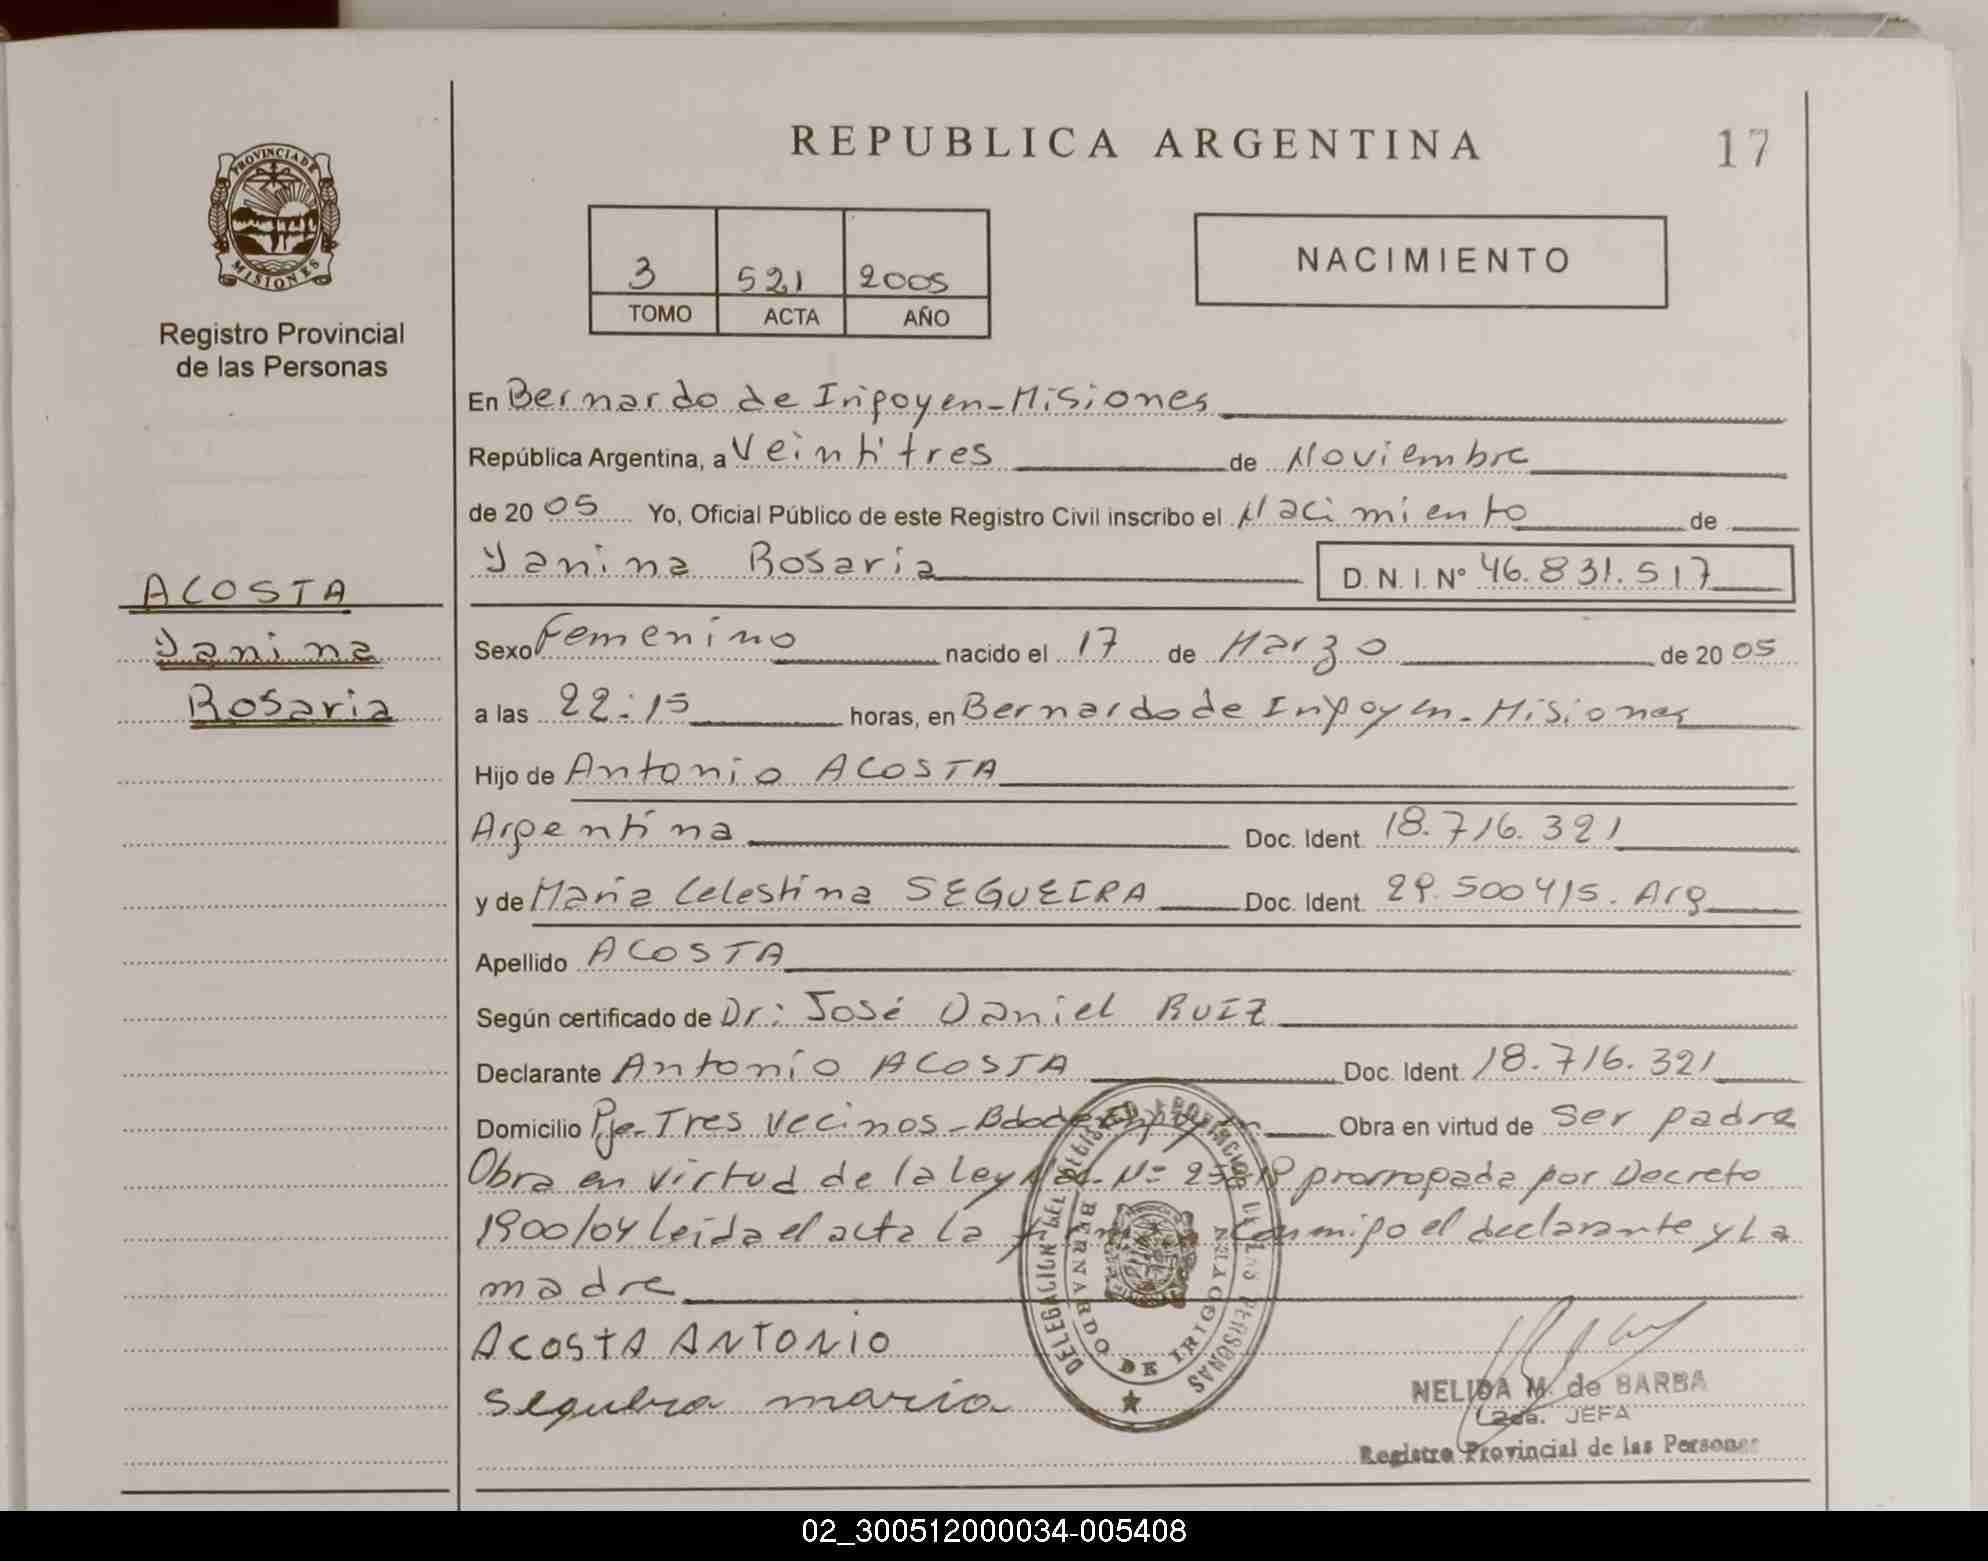 REPUBLICA ARGENTINA
17
PROVINCIA DE
MISIONES
Registro Provincial
de las Personas
3 521 2005
TOMO ACTA AÑO
NACIMIENTO
En Bernardo de Irigoyen-Misiones
República Argentina, a Veintitres de Noviembre
de 2005 Yo, Oficial Público de este Registro Civil inscribo el Nacimiento de
Yanina Rosaria D. N. I. Nº 46.831.517
ACOSTA
Yanina
Rosaria
Sexo Femenino nacido el 17 de Marzo de 2005
a las 22:15 horas, en Bernardo de Irigoyen-Misiones
Hijo de Antonio ACOSTA
Argentina Doc. Ident. 18.716.321
y de Maria Celestina SEGUEIRA Doc. Ident. 29.500415. Arg
Apellido ACOSTA
Según certificado de Dr: José Daniel RUIZ
Declarante Antonio ACOSTA Doc. Ident. 18.716.321
Domicilio Pje. Tres Vecinos - Bdo de Irigoyen Obra en virtud de Ser padre
Obra en virtud de la Ley Nac. Nº prorrogada por Decreto
1900/04 leida el acta la conmigo el declarante y La
madre
ACOSTA ANTONIO
maria
DELEGACION DEL REGISTRO PROVINCIAL DE LAS PERSONAS
BERNARDO DE IRIGOYEN
NELIDA M. de BARBA
2da. JEFA
Registro Provincial de las Personas
02_300512000034-005408